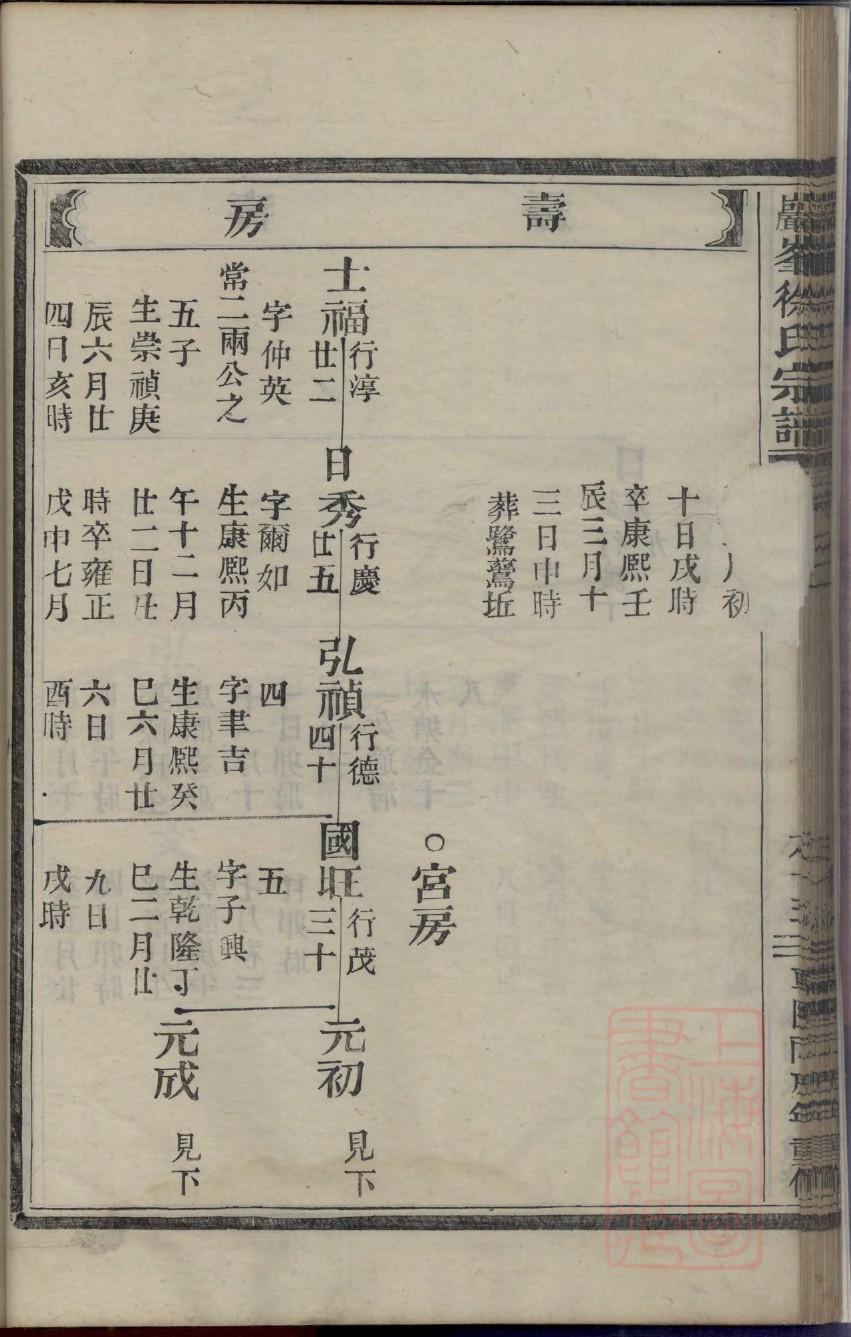 巖峯徐氏宗譜
重修
壽房
初
十日戌時
卒康熙壬
辰三月十
三日申時
葬鷺鶿坵
○宮房
士福 行淳廿二
字仲英
常二兩公之
五子
生崇禎庚
辰六月廿
四日亥時
日秀 行慶廿五
字爾如
生康熙丙
午十二月
廿二日丑
時卒雍正
戊申七月
弘禎 行德四十
四
字聿吉
生康熙癸
巳六月廿
六日
酉時
國旺 行茂三十
五
字子興
生乾隆丁
巳二月廿
九日
戌時
元初 見下
元成 見下
上海圖書館藏